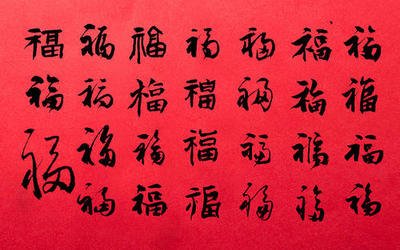 福福福福福福福
福福福福福福福
福福福福福福福
福福福福福福